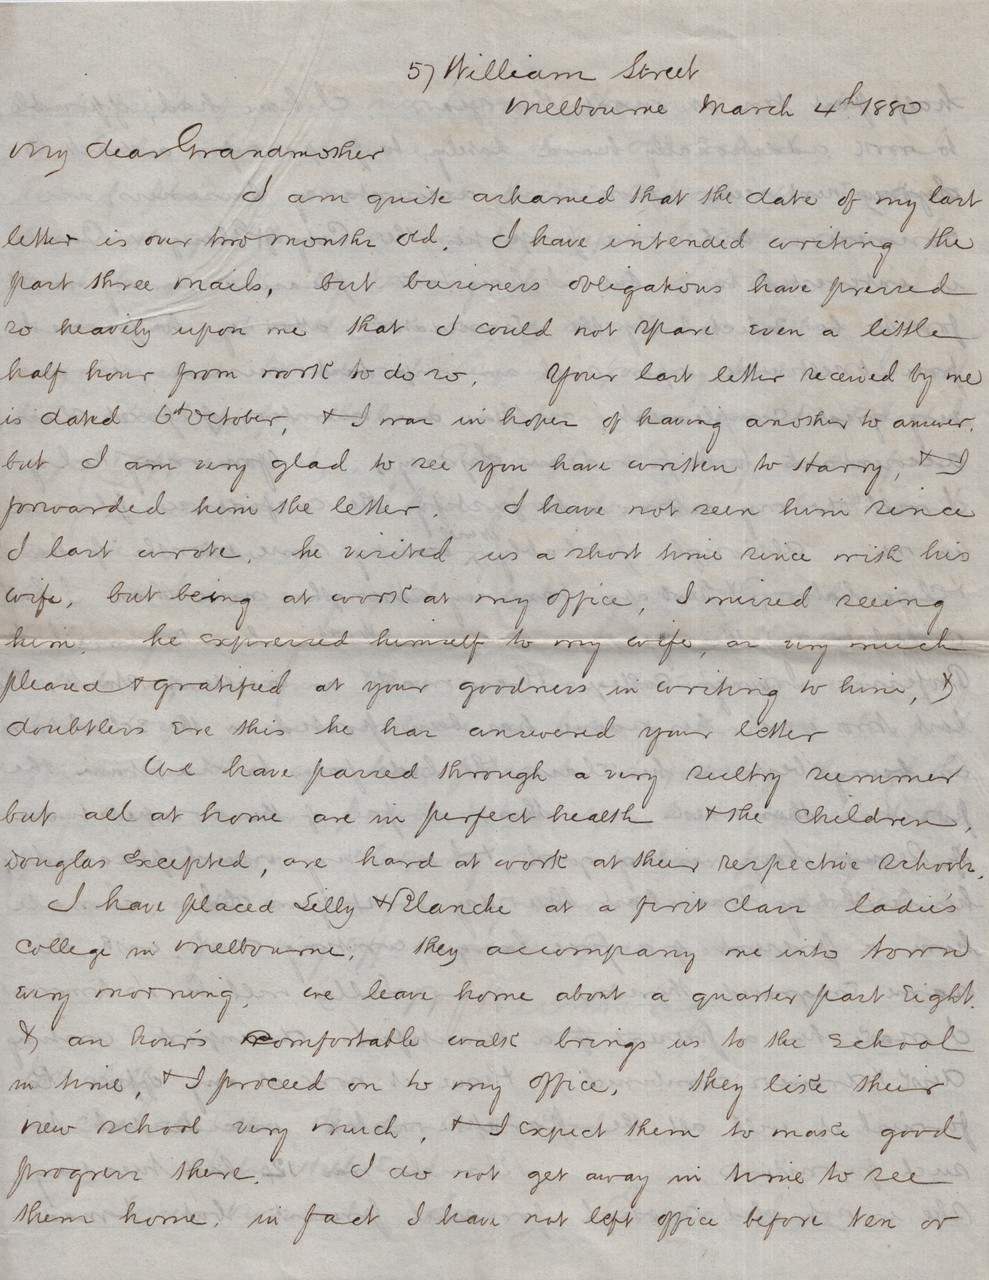 57 William Street
Melbourne March 4th 1880
My dear Grandmother
I am quite ashamed that the date of my last
letter is over two months old. I have intended writing the
past three mails, but business obligations have pressed
so heavily upon me that I could not spare even a little
half hour from work to do so. Your last letter received by me
is dated 6th October, & I was in hopes of having another to answer,
but I am very glad to see you have written to Harry, & I
forwarded him the letter. I have not seen him since
I last wrote, he visited us a short time since with his
wife, but being at work at my office, I missed seeing
him. he expressed himself to my wife, as very much
pleased & gratified at your goodness in writing to him, &
doubtless ere this he has answered your letter
We have passed through a very sultry summer
but all at home are in perfect health & the children,
Douglas excepted, are hard at work at their respective schools.
I have placed Lilly & Blanche at a first class ladies
College in Melbourne. they accompany me into town
every morning, we leave home about a quarter past Eight.
& an hour's comfortable walk brings us to the School
in time, & I proceed on to my office. they like their
new school very much, & I expect them to make good
progress there. I do not get away in time to see
them home. in fact I have not left office before ten or